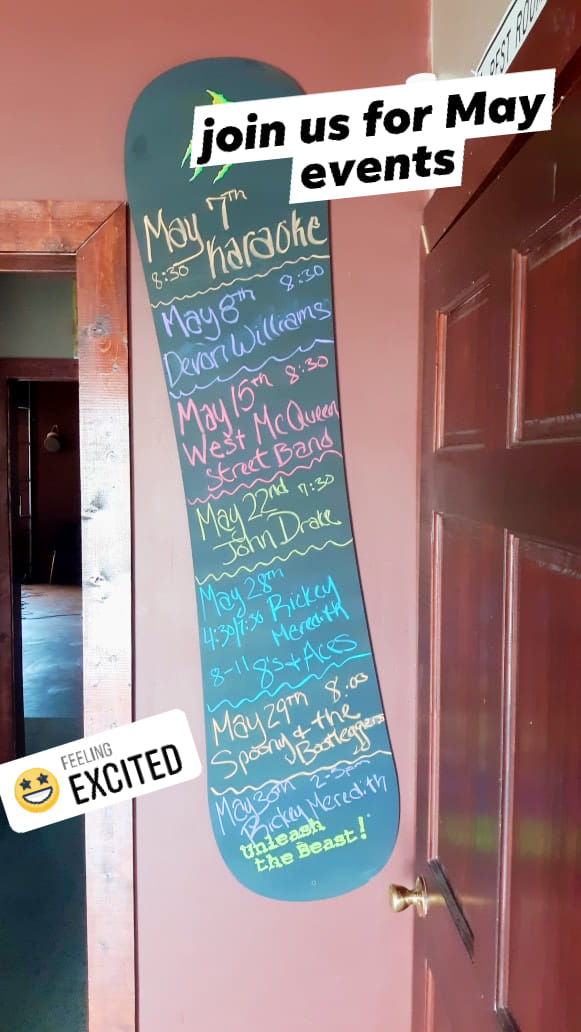 REST ROOM
join us for May
events
May 7th
8:30 Karaoke
May 8th 8:30
Devon Williams
May 15th 8:30
West McQueen
Street Band
May 22nd 7:30
John Drake
May 28th
4:30/7:30 Rickey
Meredith
8-11 8's + Aces
May 29th 8:00
Spoony & the
Bootleggers
May 30th 2-5pm
Rickey Meredith
unleash
the Beast!
FEELING
EXCITED